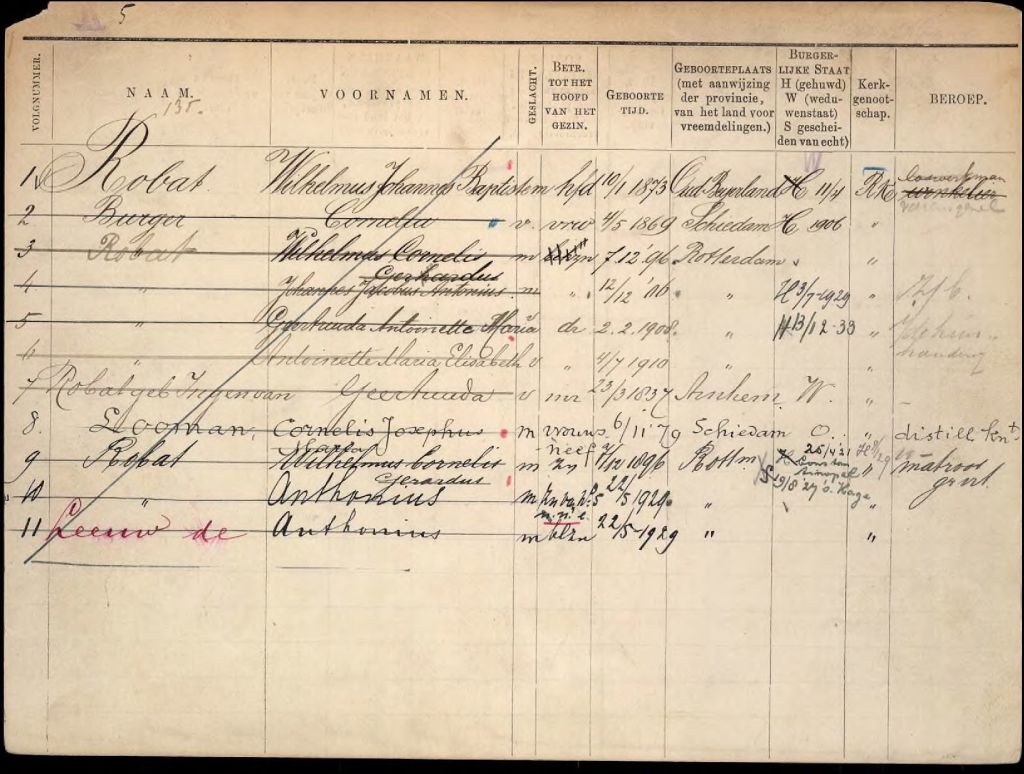 5
VOLGNUMMER.
NAAM.
135.
VOORNAMEN.
GESLACHT.
BETR. TOT HET HOOFD VAN HET GEZIN.
GEBOORTE TIJD.
GEBOORTEPLAATS (met aanwijzing der provincie, van het land voor vreemdelingen.)
BURGER-LIJKE STAAT H (gehuwd) W (wedu-wenstaat) S geschei-den van echt)
Kerk-genoot-schap.
BEROEP.
W
loswerkman
1 Robat Wilhelmus Johannes Baptist m hfd 10/1 1873 Oud Beyerland H 11/4 RK winkelier
2 Burger Cornelia v. vrw 4/5 1869 Schiedam H. 1906 "
3 Robat Wilhelmus Cornelis m 7.12.'96 Rotterdam "
Gerhardus
4 " Johannes Jacobus Antonius m " 12/12 '06 " H 3/7-1929 "
5 " Geertruida Antoinette Maria dr 2.2.1908. " H 13/12-33 "
6 " Antoinette Maria Elisabeth v " 4/7 1910 "
7 Robat geb Ingenvan Geertruida v mr 23/3 1837 Arnhem W. "
8. Looman, Cornelis Josephus m vrouws neef 6/11 '79 Schiedam O. " distill knt
Maria
9 Robat Wilhelmus Cornelis m zn 7/12 1896 Rottm 25/4 21 Constantinopel " matroos
S 19/8 27 's Hage
Gerardus
10 " Anthonius m 22/5 1929 " "
11 Leeuw de Anthonius m 22/5-1929 " "